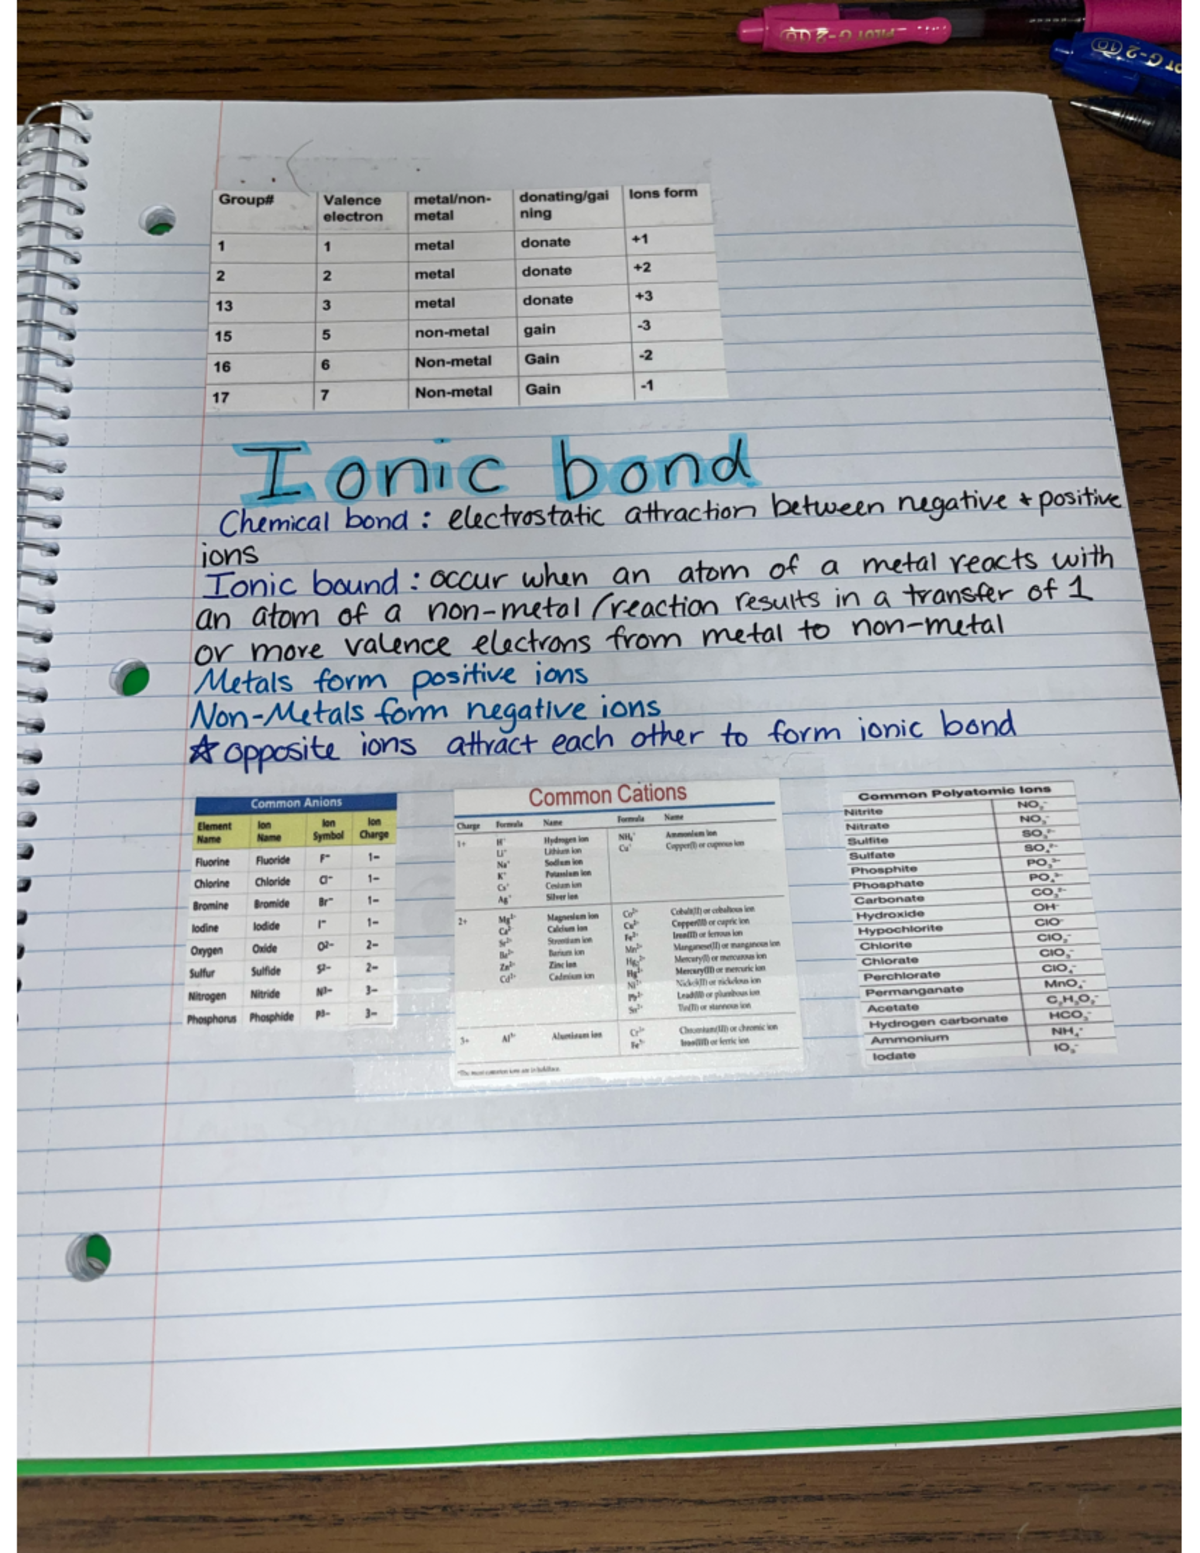 PILOT G-2 10
PILOT G-2 10
Group# Valence electron metal/non-metal donating/gaining Ions form
1 1 metal donate +1
2 2 metal donate +2
13 3 metal donate +3
15 5 non-metal gain -3
16 6 Non-metal Gain -2
17 7 Non-metal Gain -1
Ionic bond
Chemical bond : electrostatic attraction between negative + positive
ions
Ionic bound : occur when an atom of a metal reacts with
an atom of a non-metal (reaction results in a transfer of 1
or more valence electrons from metal to non-metal
Metals form positive ions
Non-Metals form negative ions
☆ opposite ions attract each other to form ionic bond
Common Anions
Element Name Ion Name Ion Symbol Ion Charge
Fluorine Fluoride F⁻ 1−
Chlorine Chloride Cl⁻ 1−
Bromine Bromide Br⁻ 1−
Iodine Iodide I⁻ 1−
Oxygen Oxide O²⁻ 2−
Sulfur Sulfide S²⁻ 2−
Nitrogen Nitride N³⁻ 3−
Phosphorus Phosphide P³⁻ 3−
Common Cations
Charge Formula Name Formula Name
1+ H⁺ Hydrogen ion NH₄⁺ Ammonium ion
Li⁺ Lithium ion Cu⁺ Copper(I) or cuprous ion
Na⁺ Sodium ion
K⁺ Potassium ion
Cs⁺ Cesium ion
Ag⁺ Silver ion
2+ Mg²⁺ Magnesium ion Co²⁺ Cobalt(II) or cobaltous ion
Ca²⁺ Calcium ion Cu²⁺ Copper(II) or cupric ion
Sr²⁺ Strontium ion Fe²⁺ Iron(II) or ferrous ion
Ba²⁺ Barium ion Mn²⁺ Manganese(II) or manganous ion
Zn²⁺ Zinc ion Hg₂²⁺ Mercury(I) or mercurous ion
Cd²⁺ Cadmium ion Hg²⁺ Mercury(II) or mercuric ion
Ni²⁺ Nickel(II) or nickelous ion
Pb²⁺ Lead(II) or plumbous ion
Sn²⁺ Tin(II) or stannous ion
3+ Al³⁺ Aluminum ion Cr³⁺ Chromium(III) or chromic ion
Fe³⁺ Iron(III) or ferric ion
*The most common ions are in boldface.
Common Polyatomic Ions
Nitrite NO₂⁻
Nitrate NO₃⁻
Sulfite SO₃²⁻
Sulfate SO₄²⁻
Phosphite PO₃³⁻
Phosphate PO₄³⁻
Carbonate CO₃²⁻
Hydroxide OH⁻
Hypochlorite ClO⁻
Chlorite ClO₂⁻
Chlorate ClO₃⁻
Perchlorate ClO₄⁻
Permanganate MnO₄⁻
Acetate C₂H₃O₂⁻
Hydrogen carbonate HCO₃⁻
Ammonium NH₄⁺
Iodate IO₃⁻